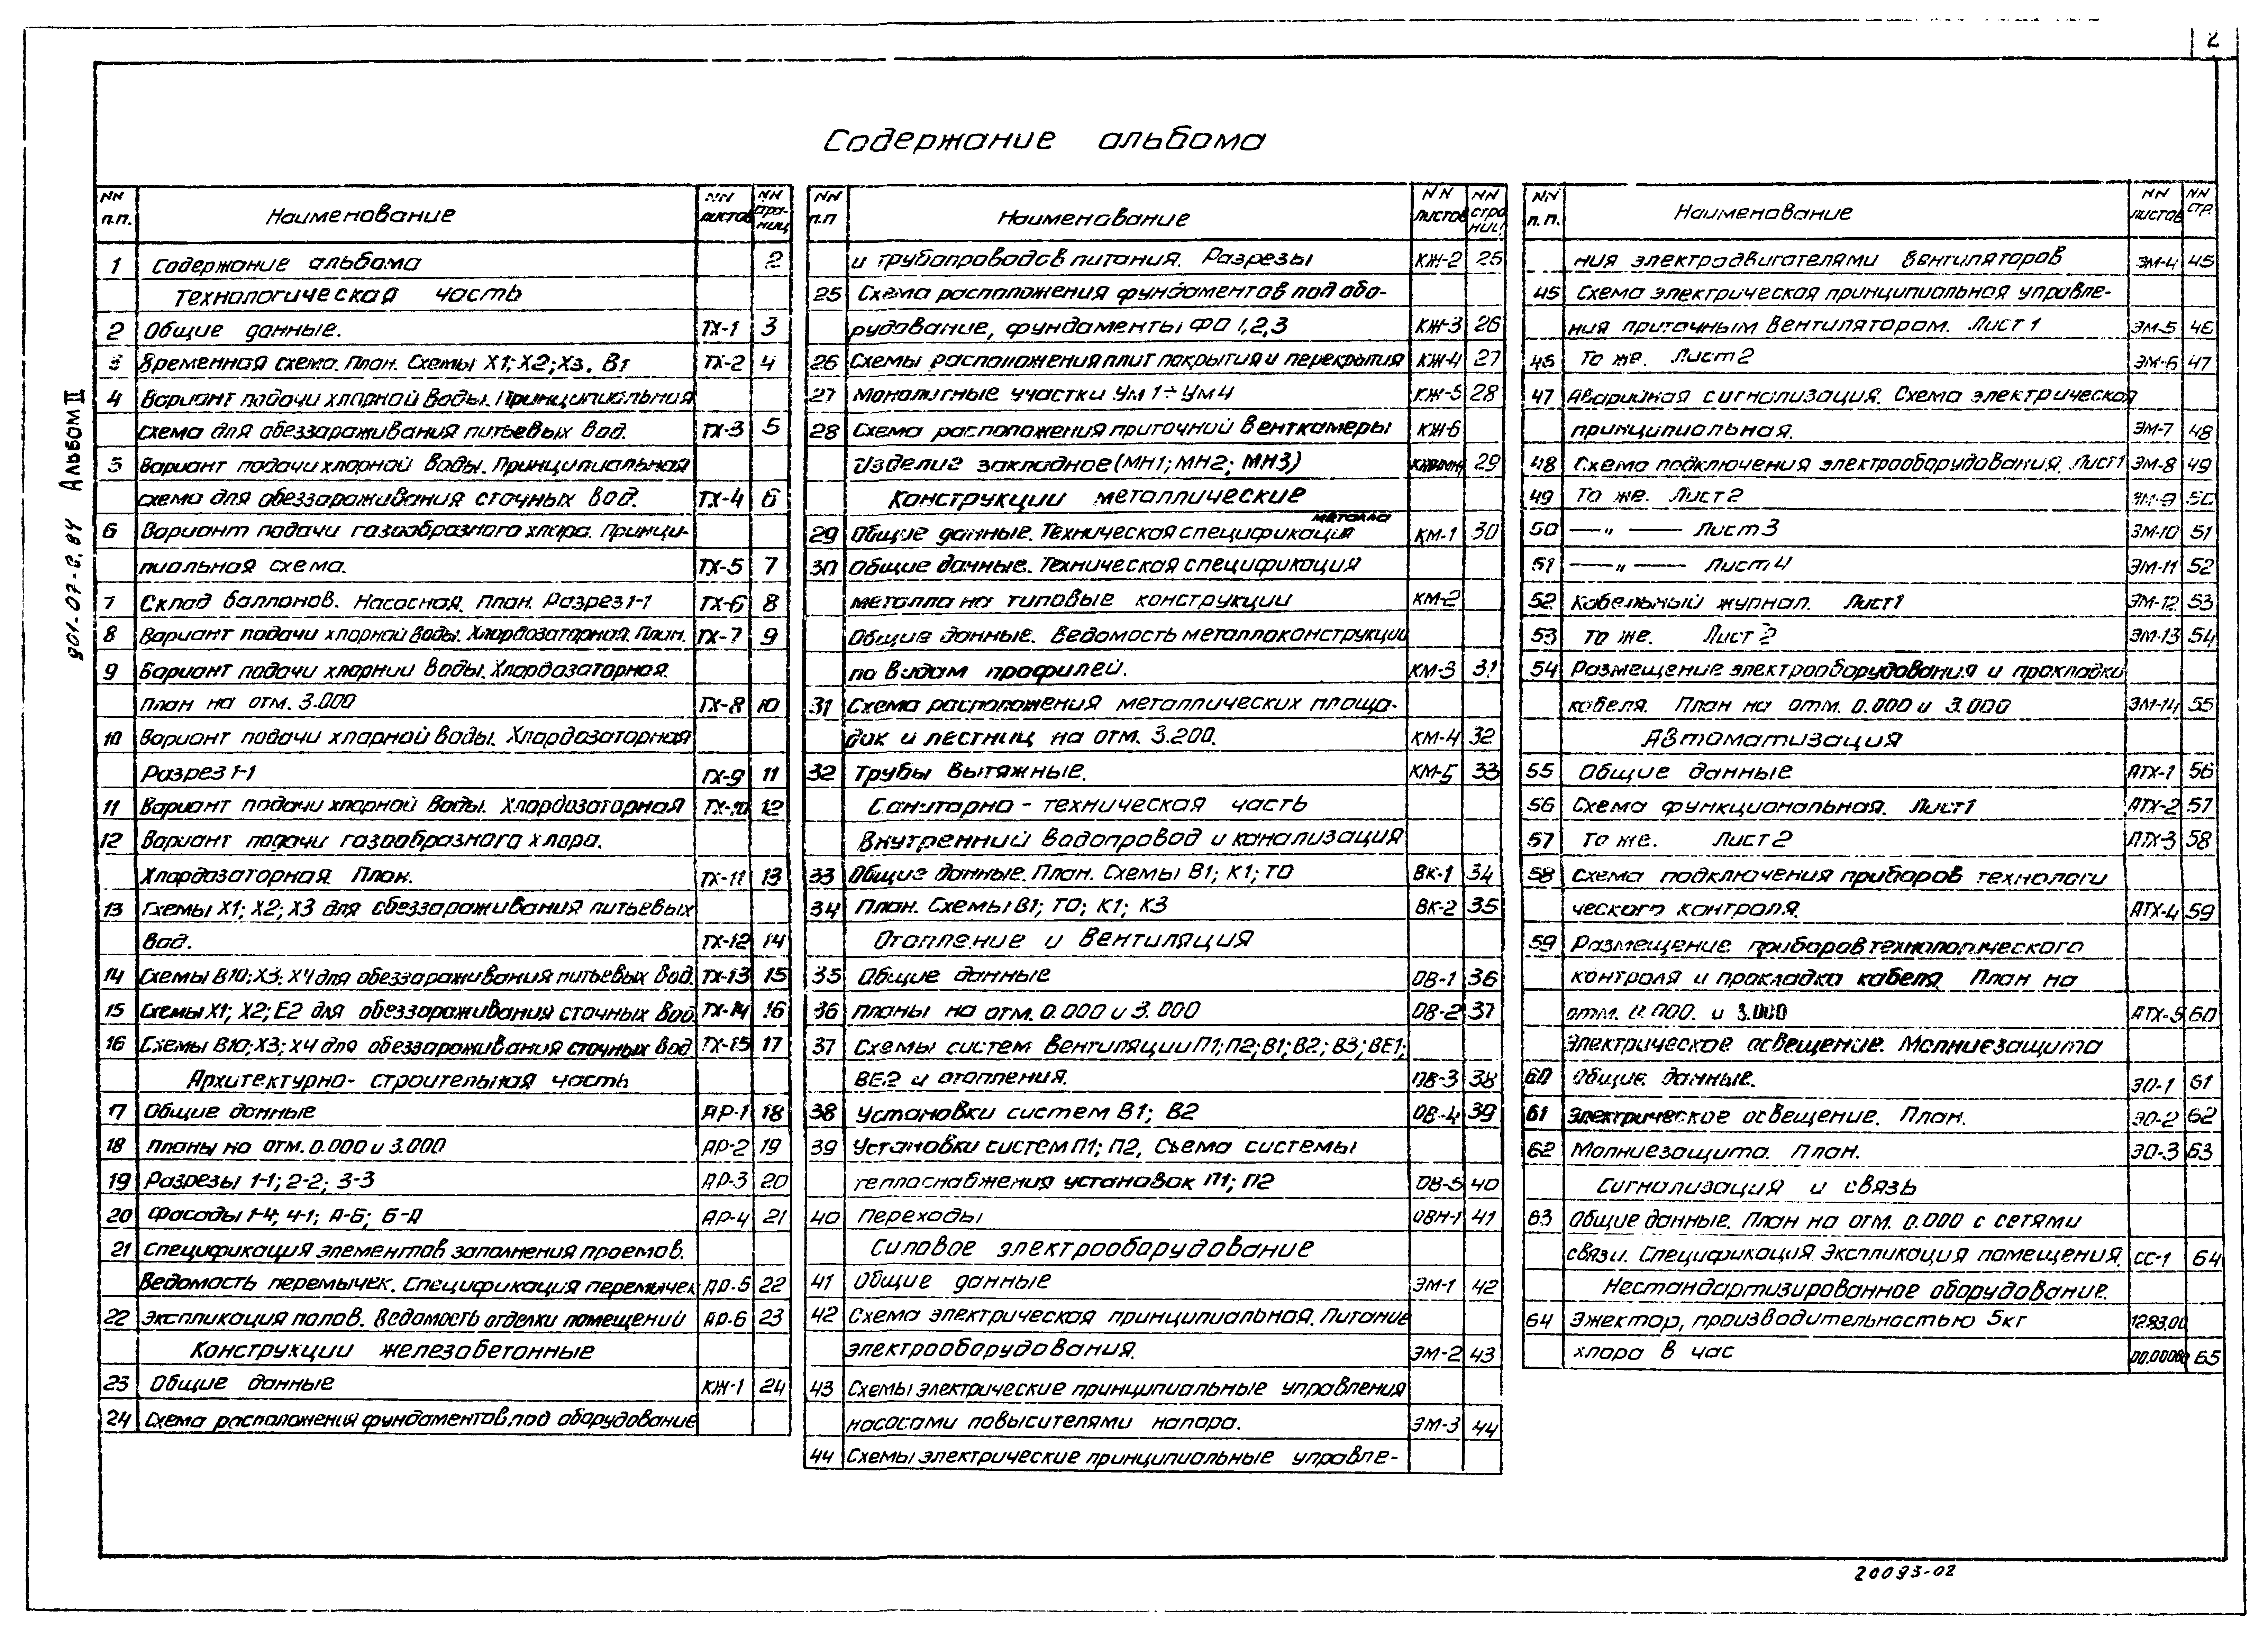 2
Содержание альбома
901-07-8.84 Альбом II
NN п.п. Наименование NN листов NN страниц
1 Содержание альбома 2
Технологическая часть
2 Общие данные. ТХ-1 3
3 Временная схема. План. Схемы Х1; Х2; Х3. В1 ТХ-2 4
4 Вариант подачи хлорной воды. Принципиальная
схема для обеззараживания питьевых вод. ТХ-3 5
5 Вариант подачи хлорной воды. Принципиальная
схема для обеззараживания сточных вод. ТХ-4 6
6 Вариант подачи газообразного хлора. Принци-
пиальная схема. ТХ-5 7
7 Склад баллонов. Насосная. План. Разрез 1-1 ТХ-6 8
8 Вариант подачи хлорной воды. Хлордозаторная. План. ТХ-7 9
9 Вариант подачи хлорнии воды. Хлордозаторная.
План на отм. 3.000 ТХ-8 10
10 Вариант подачи хлорной воды. Хлордозаторная
Разрез 1-1 ТХ-9 11
11 Вариант подачи хлорной воды. Хлордозаторная ТХ-10 12
12 Вариант подачи газообразного хлора.
Хлордозаторная. План. ТХ-11 13
13 Схемы Х1; Х2; Х3 для обеззараживания питьевых
вод. ТХ-12 14
14 Схемы В10; Х3; Х4 для обеззараживания питьевых вод. ТХ-13 15
15 Схемы Х1; Х2; Е2 для обеззараживания сточных вод ТХ-14 16
16 Схемы В10; Х3; Х4 для обеззараживания сточных вод ТХ-15 17
Архитектурно-строительная часть
17 Общие данные АР-1 18
18 Планы на отм. 0.000 и 3.000 АР-2 19
19 Разрезы 1-1; 2-2; 3-3 АР-3 20
20 Фасады 1-4; 4-1; А-Б; Б-А АР-4 21
21 Спецификация элементов заполнения проемов.
Ведомость перемычек. Спецификация перемычек АР-5 22
22 Экспликация полов. Ведомость отделки помещений АР-6 23
Конструкции железобетонные
23 Общие данные КЖ-1 24
24 Схема расположения фундаментов под оборудование
NN п.п Наименование NN листов NN страниц
и трубопроводов питания. Разрезы КЖ-2 25
25 Схема расположения фундаментов под обо-
рудование, фундаменты ФО 1,2,3 КЖ-3 26
26 Схемы расположения плит покрытия и перекрытия КЖ-4 27
27 Монолитные участки Ум 1÷Ум4 КЖ-5 28
28 Схема расположения приточной венткамеры КЖ-6
Изделие закладное (МН1; МН2; МН3) 29
Конструкции металлические
29 Общие данные. Техническая спецификация металла КМ-1 30
30 Общие данные. Техническая спецификация
металла на типовые конструкции КМ-2
Общие данные. Ведомость металлоконструкции
по видам профилей. КМ-3 31
31 Схема расположения металлических площа-
док и лестниц на отм. 3.200. КМ-4 32
32 Трубы вытяжные. КМ-5 33
Санитарно-техническая часть
Внутренний водопровод и канализация
33 Общие данные. План. Схемы В1; К1; ТО ВК-1 34
34 План. Схемы В1; ТО; К1; К3 ВК-2 35
Отопление и вентиляция
35 Общие данные ОВ-1 36
36 Планы на отм. 0.000 и 3.000 ОВ-2 37
37 Схемы систем вентиляции П1; П2; В1; В2; В3; ВЕ1;
ВЕ2 и отопления. ОВ-3 38
38 Установки систем В1; В2 ОВ-4 39
39 Установки систем П1; П2, Схема системы
теплоснабжения установок П1; П2 ОВ-5 40
40 Переходы ОВН-1 41
Силовое электрооборудование
41 Общие данные ЭМ-1 42
42 Схема электрическая принципиальная. Питание
электрооборудования. ЭМ-2 43
43 Схемы электрические принципиальные управления
насосами повысителями напора. ЭМ-3 44
44 Схемы электрические принципиальные управле-
NN п.п. Наименование NN листов NN стр.
ния электродвигателями вентиляторов ЭМ-4 45
45 Схема электрическая принципиальная управле-
ния приточным вентилятором. Лист 1 ЭМ-5 46
46 То же. Лист 2 ЭМ-6 47
47 Аварийная сигнализация. Схема электрическая
принципиальная. ЭМ-7 48
48 Схема подключения электрооборудования. Лист 1 ЭМ-8 49
49 То же. Лист 2 ЭМ-9 50
50 —„— Лист 3 ЭМ-10 51
51 —„— Лист 4 ЭМ-11 52
52 Кабельный журнал. Лист 1 ЭМ-12 53
53 То же. Лист 2 ЭМ-13 54
54 Размещение электрооборудования и прокладка
кабеля. План на отм. 0.000 и 3.000 ЭМ-14 55
Автоматизация
55 Общие данные АТХ-1 56
56 Схема функциональная. Лист 1 АТХ-2 57
57 То же. Лист 2 АТХ-3 58
58 Схема подключения приборов технологи
ческого контроля. АТХ-4 59
59 Размещение приборов технологического
контроля и прокладка кабеля. План на
отм. 0.000. и 3.000 АТХ-5 60
Электрическое освещение. Молниезащита
60 Общие данные. ЭО-1 61
61 Электрическое освещение. План. ЭО-2 62
62 Молниезащита. План. ЭО-3 63
Сигнализация и связь
63 Общие данные. План на отм. 0.000 с сетями
связи. Спецификация Экспликация помещения. СС-1 64
Нестандартизированное оборудование.
64 Эжектор, производительностью 5кг 12.83.00
хлора в час 65
20093-02